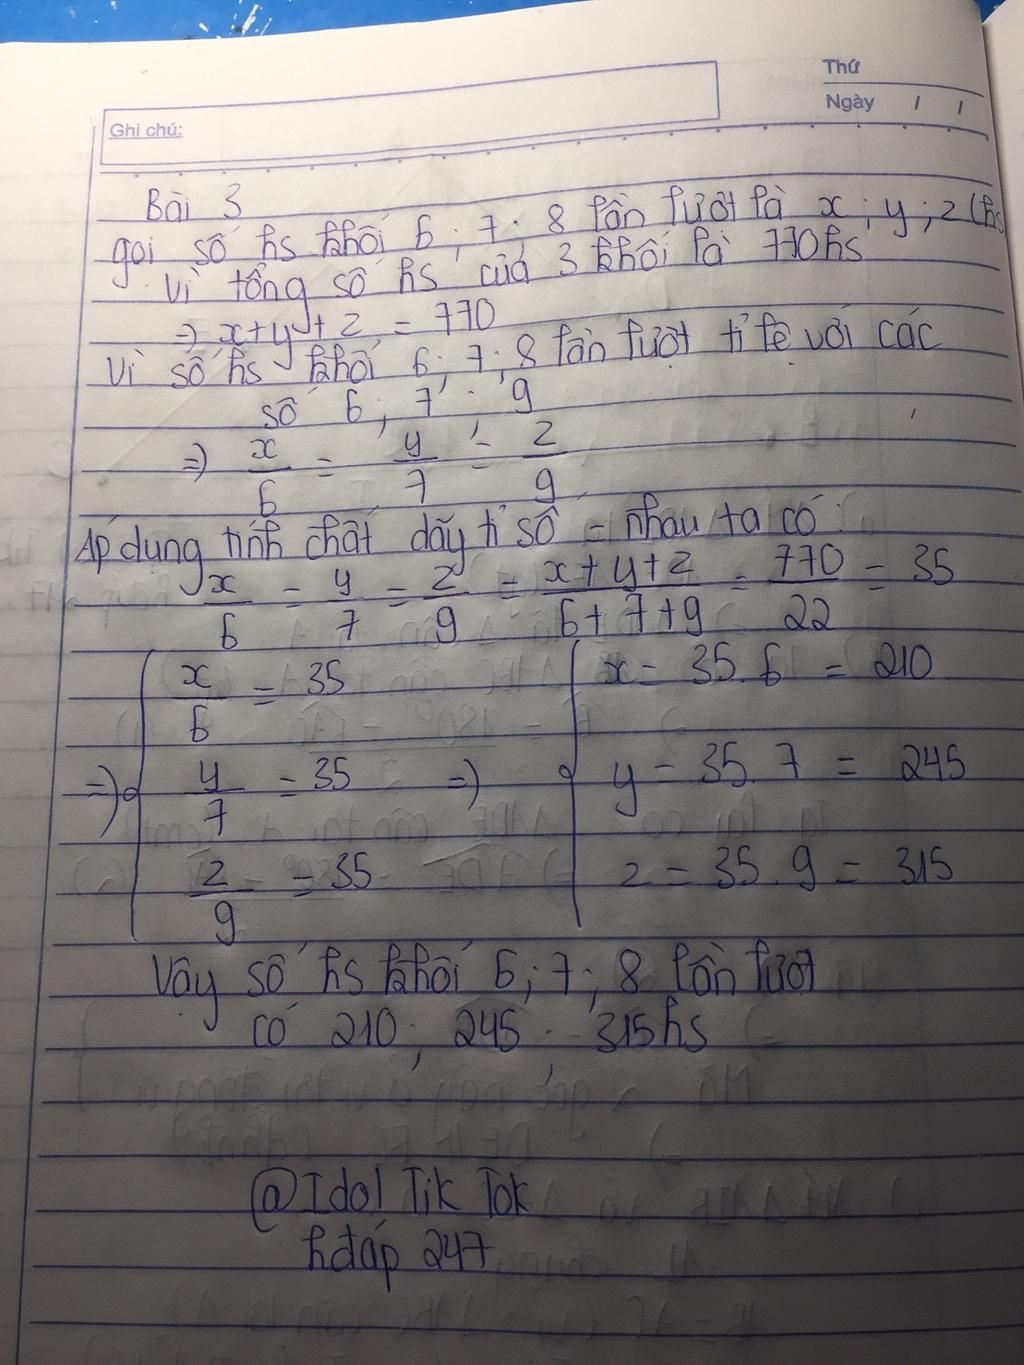 Thứ
Ngày / /
Ghi chú:
Bài 3
gọi số hs khối 6 ; 7 ; 8 lần lượt là x ; y ; z (hs
Vì tổng số hs của 3 khối là 770hs
=> x+y+z = 770
Vì số hs khối 6 ; 7 ; 8 lần lượt tỉ lệ với các
số 6 ; 7 ; 9
=> x/6 = y/7 = z/9
Áp dụng tính chất dãy tỉ số = nhau ta có
x/6 = y/7 = z/9 = x+y+z/6+7+9 = 770/22 = 35
x/6 = 35 x = 35.6 = 210
=> { y/7 = 35 => { y = 35.7 = 245
z/9 = 35 z = 35.9 = 315
Vậy số hs khối 6 ; 7 ; 8 lần lượt
có 210 ; 245 ; 315hs
@Idol Tik Tok
hđáp 247